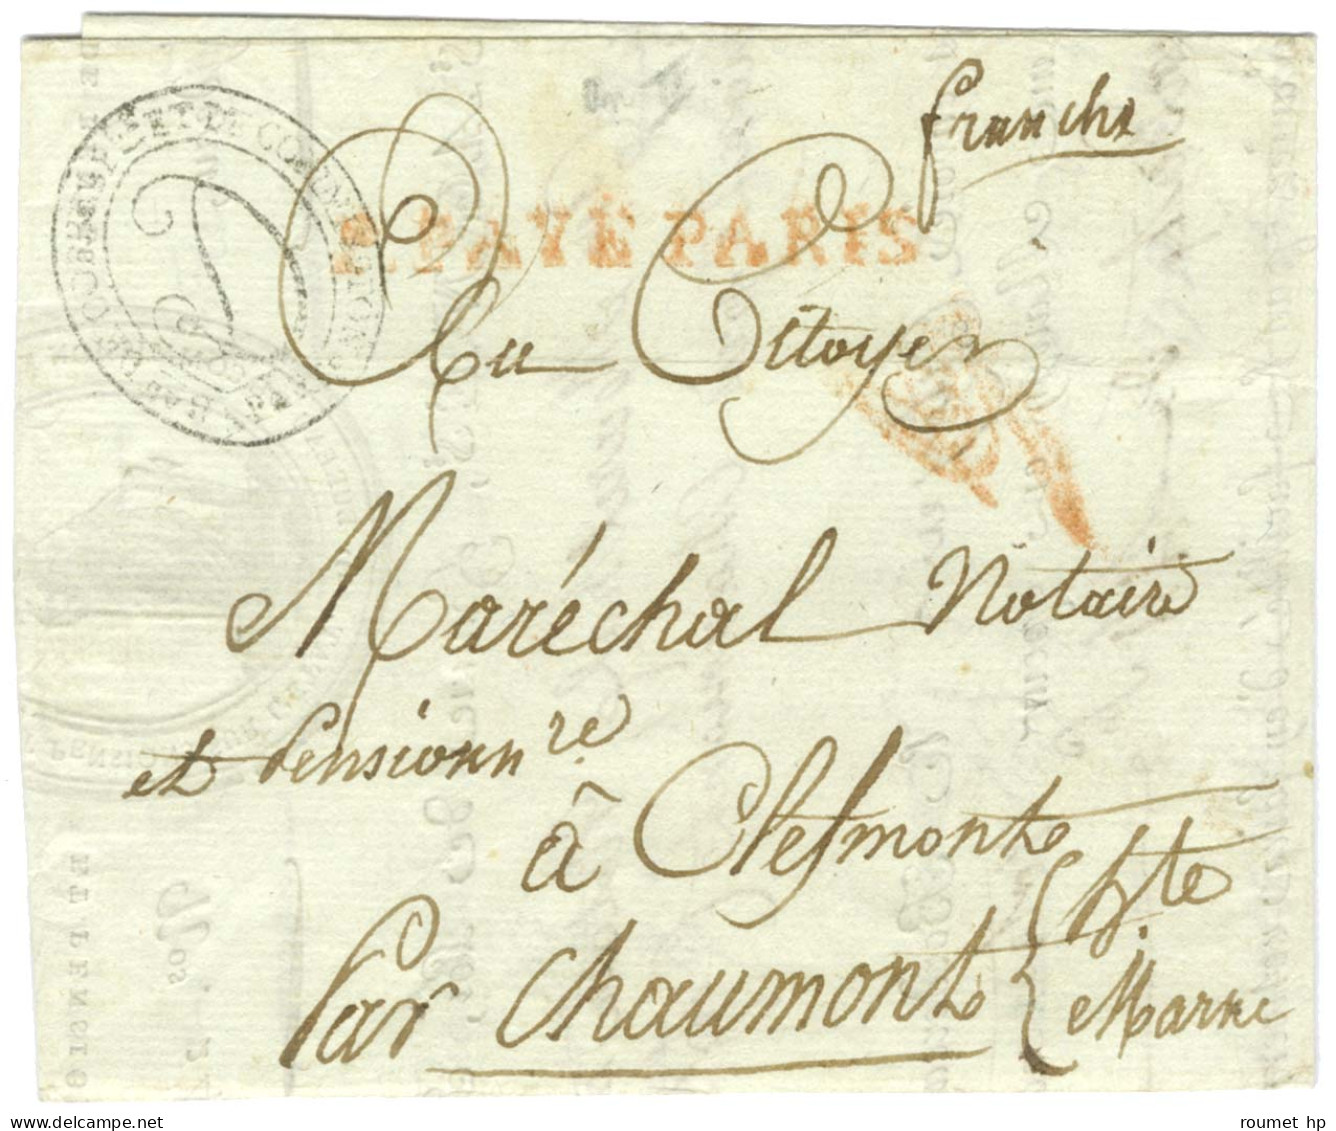 franche
P. PAYÉ PARIS
Au Citoyen
Maréchal Notaire
et Pensionn.re
à Clefmont
Par Chaumont { hte
Marne
roumet hp